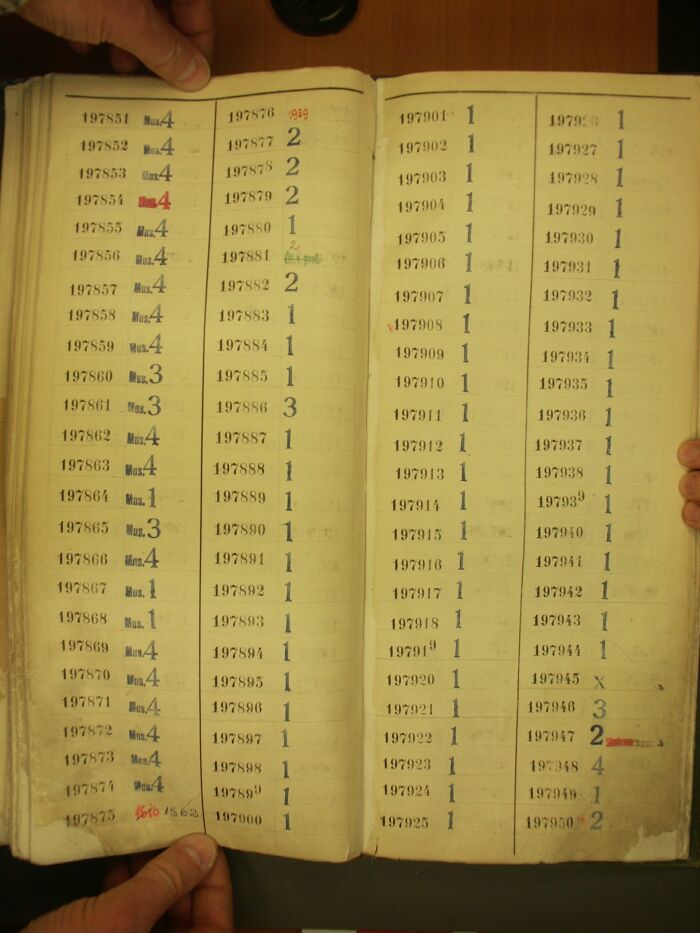 197851 Mus. 4
197852 Mus. 4
197853 Mus. 4
197854 Mus. 4
197855 Mus. 4
197856 Mus. 4
197857 Mus. 4
197858 Mus. 4
197859 Mus. 4
197860 Mus. 3
197861 Mus. 3
197862 Mus. 4
197863 Mus. 4
197864 Mus. 1
197865 Mus. 3
197866 Mus. 4
197867 Mus. 1
197868 Mus. 1
197869 Mus. 4
197870 Mus. 4
197871 Mus. 4
197872 Mus. 4
197873 Mus. 4
197874 Mus. 4
197875 1562
197876 1959
197877 2
197878 2
197879 2
197880 1
197881 2
197882 2
197883 1
197884 1
197885 1
197886 3
197887 1
197888 1
197889 1
197890 1
197891 1
197892 1
197893 1
197894 1
197895 1
197896 1
197897 1
197898 1
197899 1
197900 1
197901 1
197902 1
197903 1
197904 1
197905 1
197906 1
197907 1
197908 1
197909 1
197910 1
197911 1
197912 1
197913 1
197914 1
197915 1
197916 1
197917 1
197918 1
197919 1
197920 1
197921 1
197922 1
197923 1
197924 1
197925 1
1
197927 1
197928 1
197929 1
197930 1
197931 1
197932 1
197933 1
197934 1
197935 1
197936 1
197937 1
197938 1
197939 1
197940 1
197941 1
197942 1
197943 1
197944 1
197945 x
197946 3
197947 2
197948 4
197949 1
197950 2